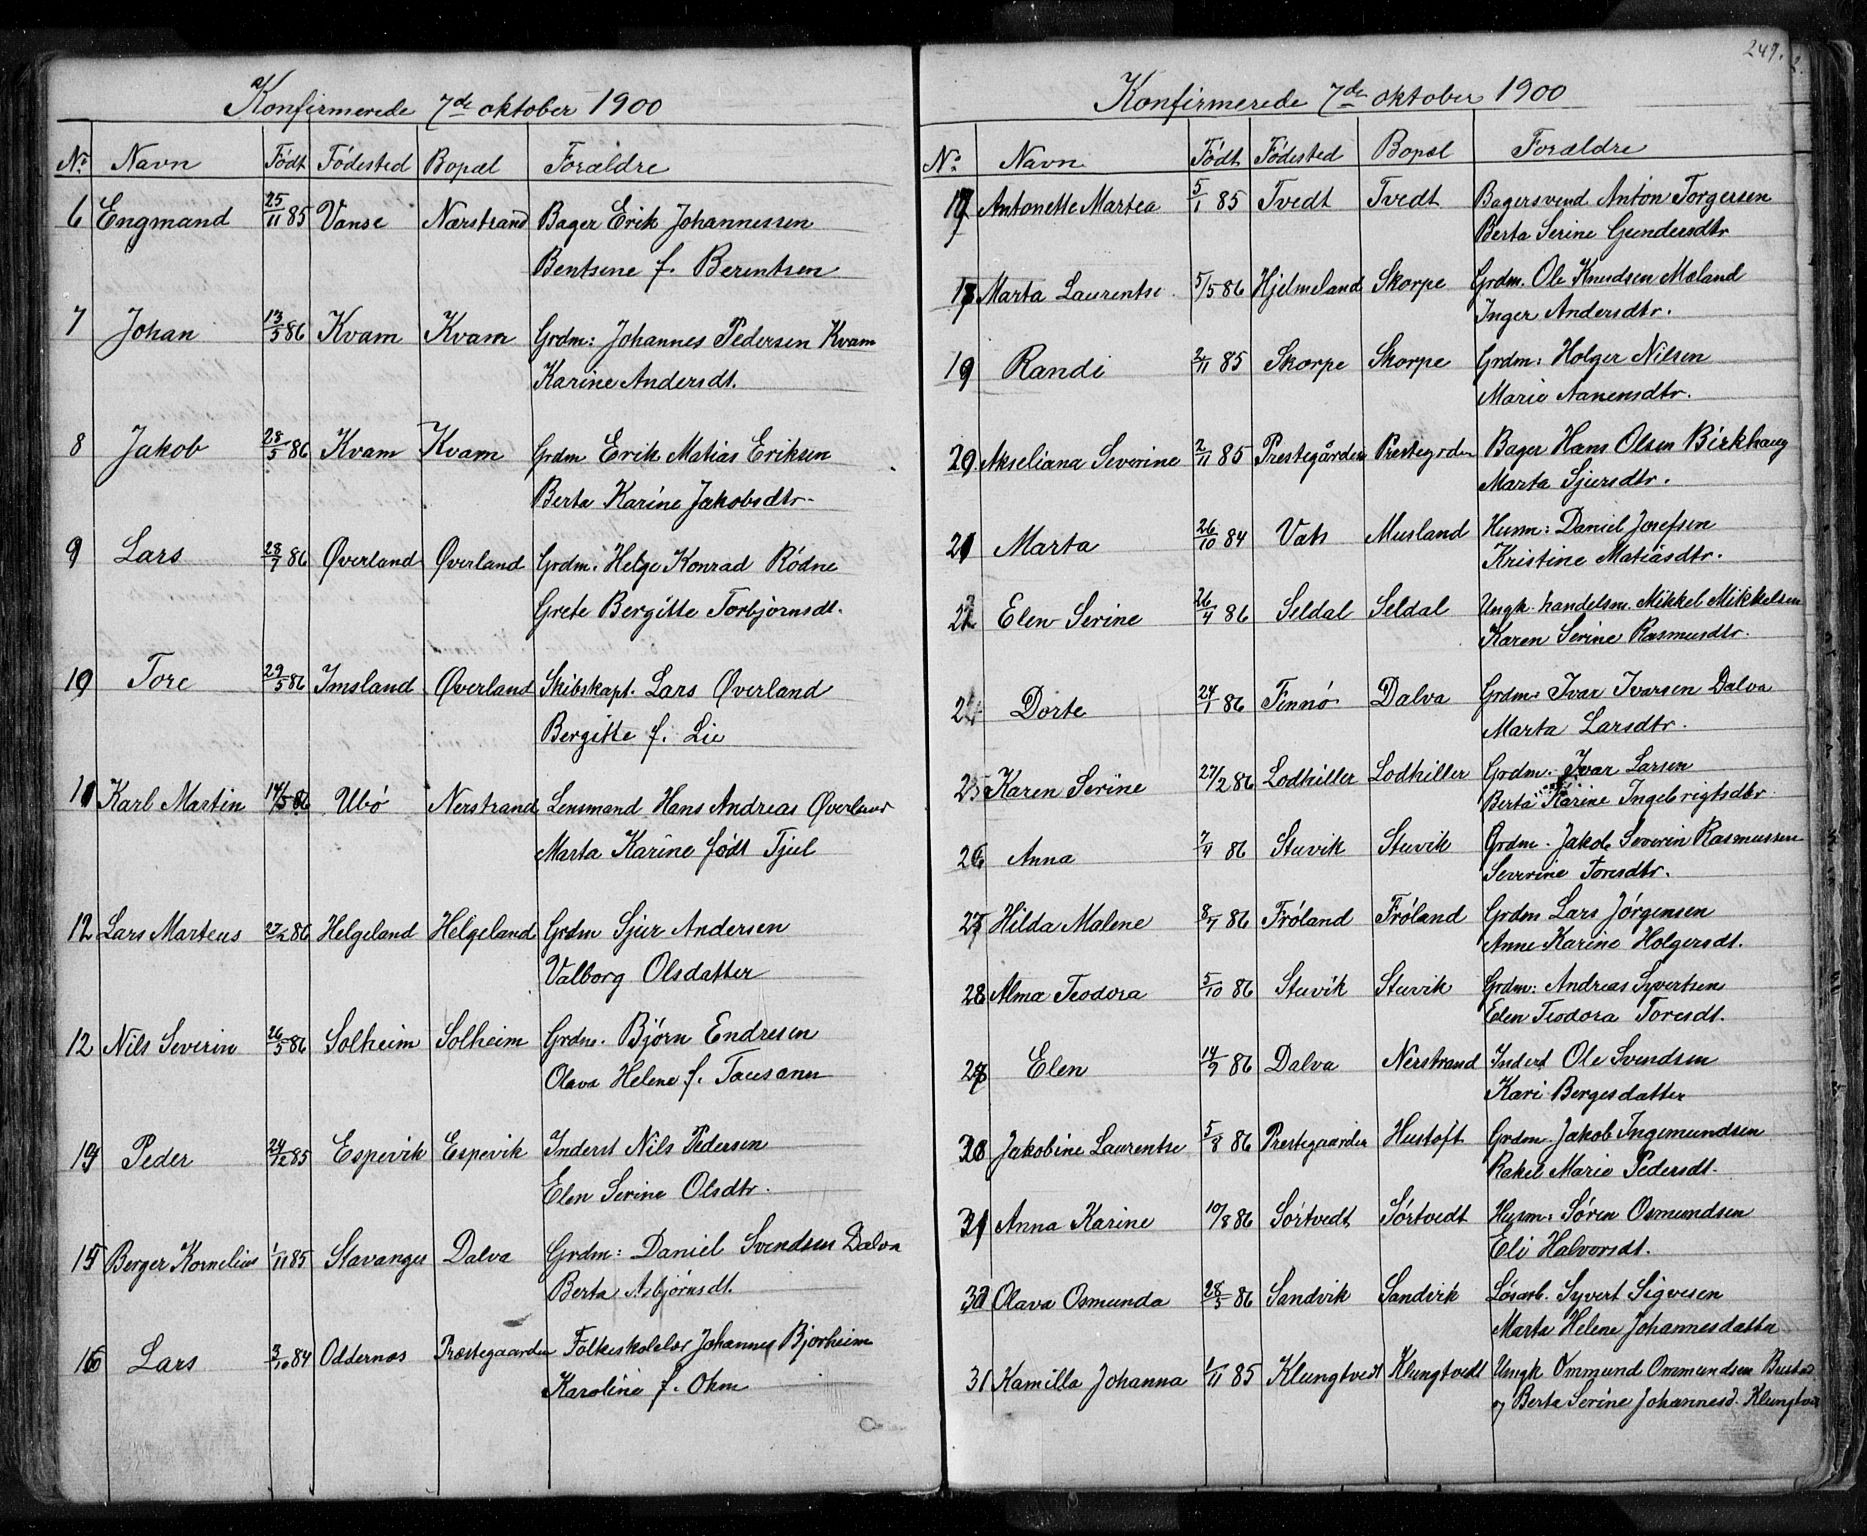 Konfirmerede 7de oktober 1900
No Navn Født Fødested Bopæl Forældre
6 Engmand 25/11 85 Vanse Nærstrand Bager Erik Johannessen
Bentsine f. Berentsen
7 Johan 13/5 86 Kvam Kvam Grdm: Johannes Pedersen Kvam
Karine Andersdt.
8 Jakob 28/5 86 Kvam Kvam Grdm Erik Matias Eriksen
Berta Karine Jakobsdtr.
9 Lars 28/7 86 Øverland Øverland Grdm. Helge Konrad Rødne
Grete Bergitte Torbjørnsdt.
10 Tore 29/5 86 Imsland Øverland Skibskapt. Lars Øverland
Bergitte f. Lie
11 Karl Martin 14/5 86 Ubø Nerstrand Lensmand Hans Andreas Øverland
Marta Karine født Tjul
12 Lars Martens 27/2 86 Helgeland Helgeland Grdm Sjur Andersen
Valborg Olsdatter
12 Nils Severin 26/5 86 Solheim Solheim Grdm. Bjørn Endresen
Olava Helene f.
14 Peder 24/12 85 Espevik Espevik Inderst Nils Pedersen
Elen Serine Olsdtr.
15 Berger Kornelius 1/11 85 Stavanger Dalva Grdm: Daniel Svendsen Dalva
Berta Asbjørnsdt.
16 Lars 3/10 84 Oddernes Præstegaarden Folkeskolelær Johannes Bjorheim
Karoline f. Ohm
249.
Konfirmerede 7de oktober 1900
No Navn Født Fødested Bopæl Forældre
17 Antonette Martea 5/1 85 Tvedt Tvedt Bagersvend Anton Torgersen
Berta Serine Gundersdtr
18 Marta Laurentse 5/5 86 Hjelmeland Skorpe Grdm. Ole Knudsen Mæland
Inger Andersdtr.
19 Randi 2/11 85 Skorpe Skorpe Grdm: Holger Nilsen
Marie Aanensdtr.
20 Akseliana Severine 2/11 85 Prestegården Prestegrden Bager Hans Olsen Birkhaug
Marta Sjursdtr.
21 Marta 26/10 84 Vats Musland Husm: Daniel Josefsen
Kristine Matiasdtr.
Elen Serine 26/4 86 Seldal Seldal Ungk. handelsm. Mikkel Mikkelsen
Karen Serine Rasmusdtr.
24 Dorte 24/1 86 Finnø Dalva Grdm. Ivar Ivarsen Dalva
Marta Larsdtr.
25 Karen Serine 27/2 86 Lodhiller Lodhiller Grdm. Ivar Larsen
Berta Karine Ingebrigtsdtr
26 Anna 7/4 86 Stuvik Stuvik Grdm. Jakob Severin Rasmussen
Severine Toresdtr.
27 Hilda Malene 8/7 86 Frøland Frøland Grdm Lars Jørgensen
Anne Karine Holgersdt.
28 Alma Teodora 5/10 86 Stuvik Stuvik Grdm: Andreas Syvertsen
Elen Teodora Toresdt.
Elen 14/9 86 Dalva Nerstrand Inderst Ole Svendsen
Kari Bergesdatter
30 Jakobine Laurentse 5/8 86 Prestegaarden Hustoft Grdm. Jakob Ingemundsen
Rakel Marie Pedersdt.
31 Anna Karine 10/8 86 Sørtvedt Sørtvedt Husm: Søren Osmundsen
Eli Halvorsdt.
Olava Osmunda 28/3 86 Sandvik Sandvik Løsarb. Syvert Sigvesen
Marta Helene Johannesdatter
31 Kamilla Johanna 1/11 85 Klungtvedt Klungtvedt Ungk Ommund Ommundsen
og Berta Serine Johannesd. Klungtvedt